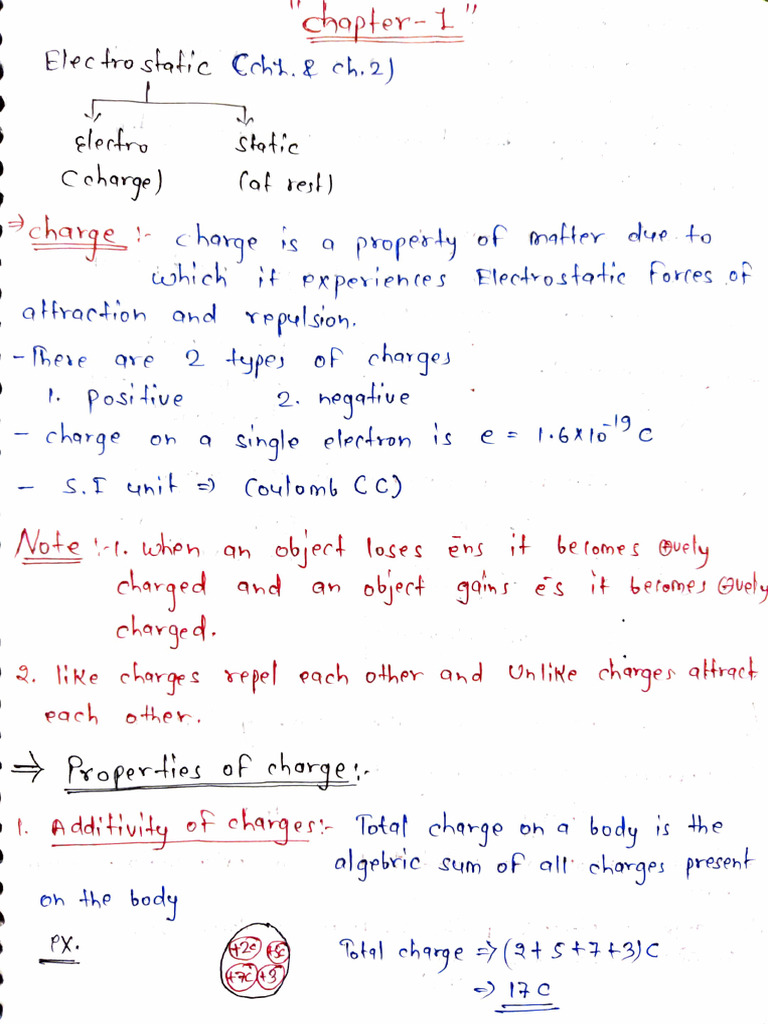 "chapter-1"
Electrostatic (ch1. & ch.2)
Electro static
(charge) (at rest)
⇒ charge :- charge is a property of matter due to
which it experiences Electrostatic Forces of
attraction and repulsion.
- There are 2 types of charges
1. positive 2. negative
- charge on a single electron is e = 1.6×10⁻¹⁹ C
- S.I unit ⇒ Coulomb (C)
Note :- 1. when an object loses ēns it becomes ⊕vely
charged and an object gains ēs it becomes ⊖vely
charged.
2. like charges repel each other and Unlike charges attract
each other.
⇒ Properties of charge:-
1. Additivity of charges:- Total charge on a body is the
algebric sum of all charges present
on the body
ex. +2c +5c Total charge ⇒ (2+5+7+3)C
+7c +3
⇒ 17 C